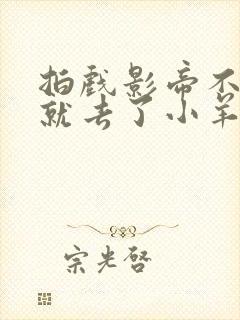 拍戏影帝不
就去了小羊
宗光启